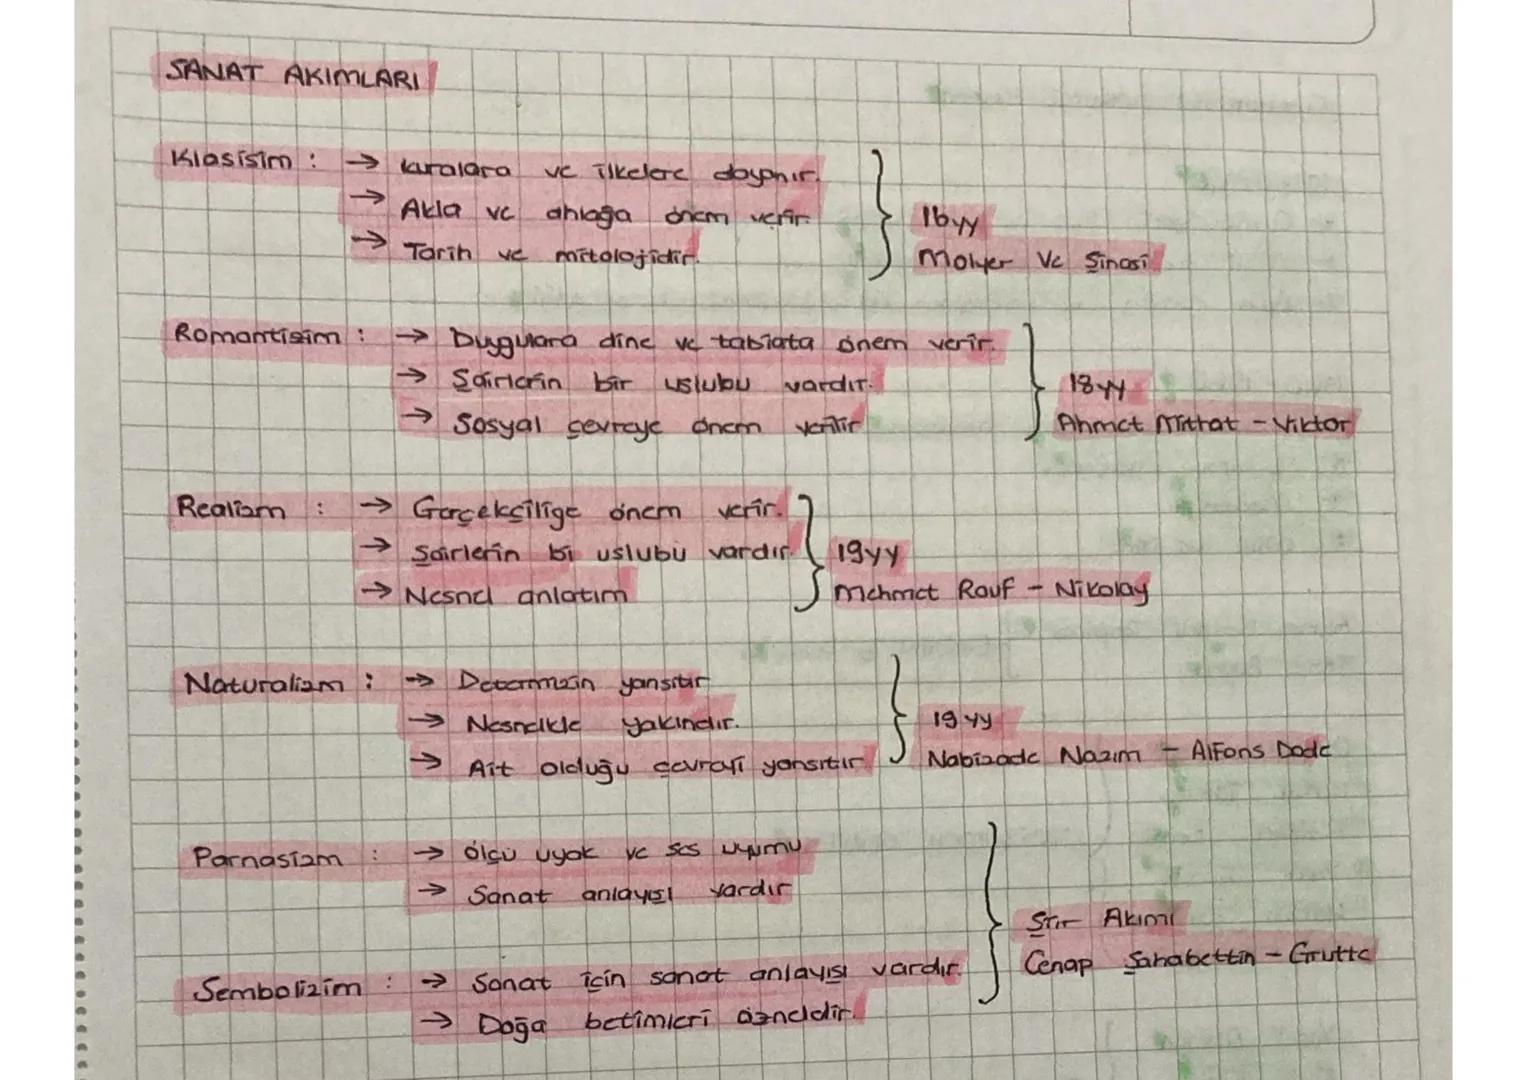 SANAT AKIMLARI
Klasisim : → kuralara ve ilkelere dayanır.
→ Akla ve ahlağa önem verir.
→ Tarih ve mitolojidir.
16yy
Molyer Ve Şinasi
Romantisim : → Duygulara dine ve tabiata önem verir.
→ Şairlerin bir uslubu vardır.
→ Sosyal çevreye önem verilir
18yy
Ahmet Mithat - Viktor
Realizm : → Gerçekçiliğe önem verir.
→ Şairlerin bi uslubu vardır.
→ Nesnel anlatım
19yy
Mehmet Rauf - Nikolay
Naturalizm : → yansıtır
→ yakındır.
→ Ait olduğu çevreyi yansıtır
19 yy
Nabizade Nazım - Alfons Dode
Parnasizm : → ölçü uyak ve ses uyumu
→ Sanat anlayışı vardır
Sembolizim : → Sanat için sanat anlayışı vardır.
→ Doğa betimleri özneldir.
Şiir Akımı
Cenap Şahabettin - Grutte